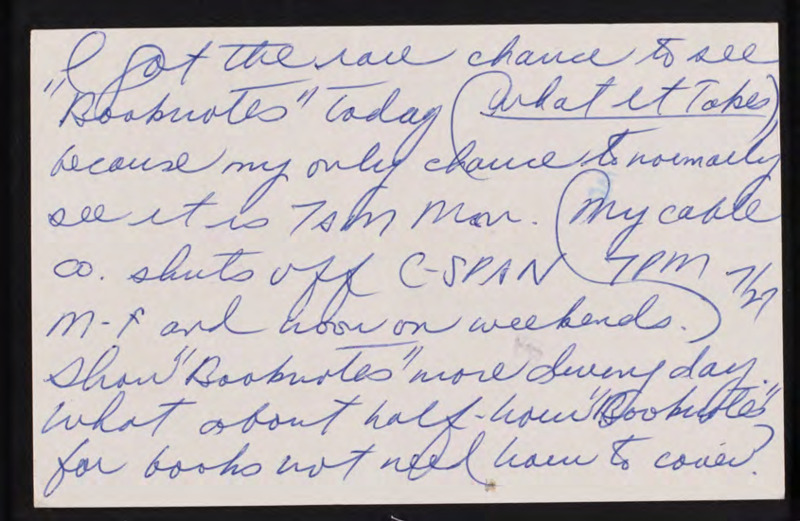 I got the rare chance to see
"Booknotes" today (What it Takes)
because my only chance to normally
see it is 7AM Mon. (My cable
co. shuts off C-SPAN 7PM 7/27
M-F and noon on weekends.)
Show "Booknotes" more during day.
What about half-hour "Booknotes"
for books not need hour to cover?